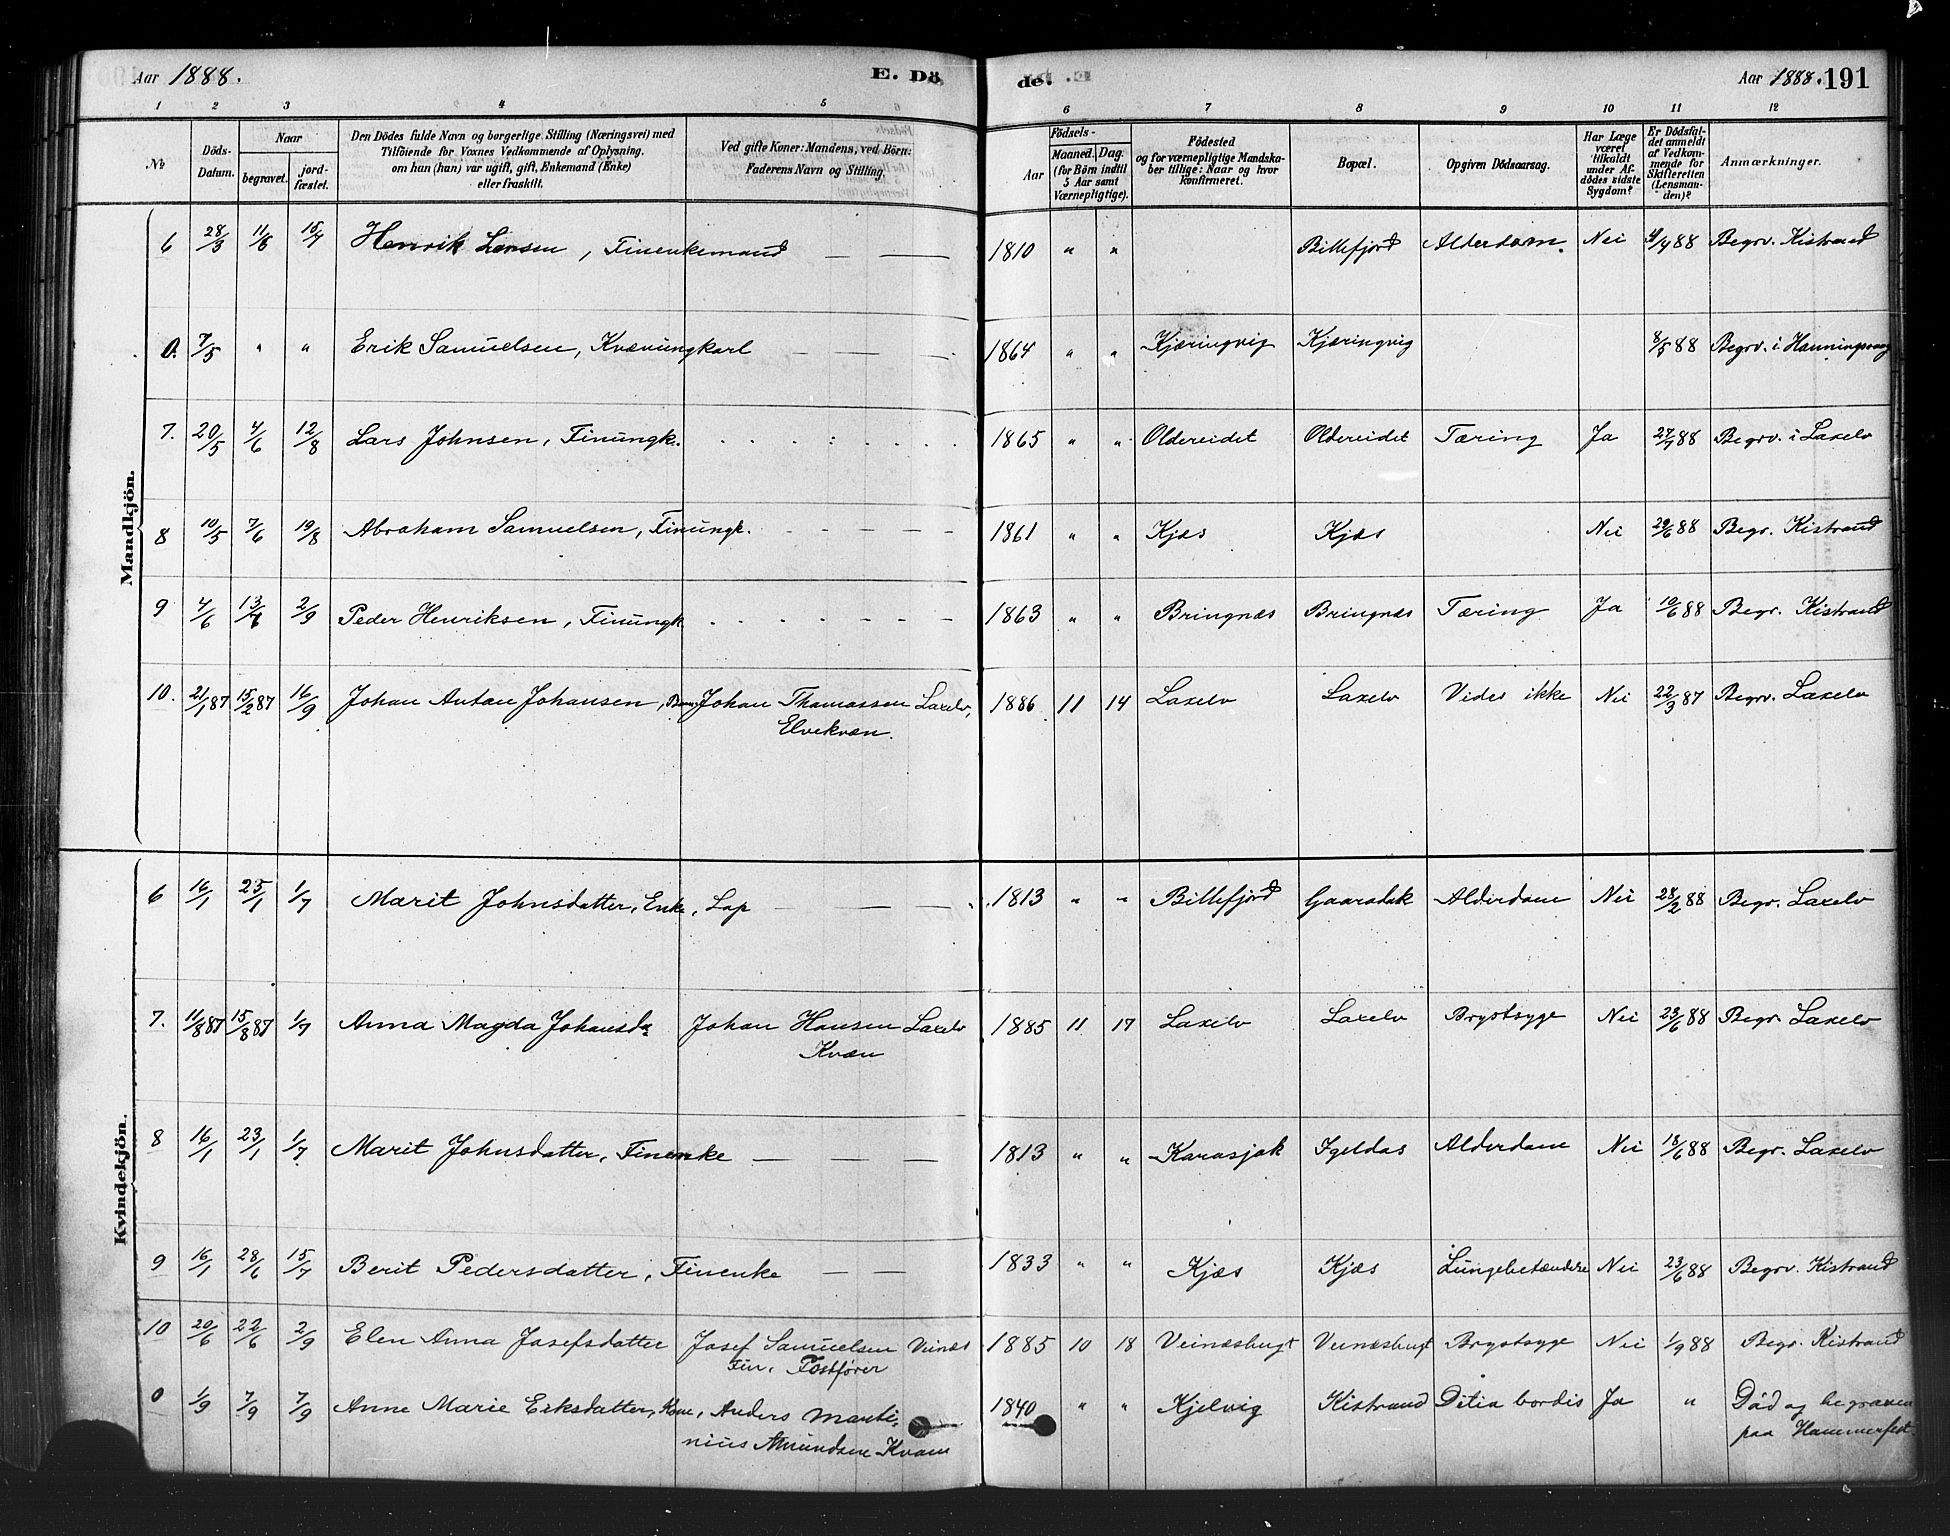 Aar 1888. E. Dö de. Aar 1888. 191
1 2 3 4 5 6 7 8 9 10 11 12
No
Döds-Datum.
Naar
begravet.
jord-fæstet.
Den Dödes fulde Navn og borgerlige Stilling (Næringsvei) med
Tilföiende for Voxnes Vedkommende af Oplysning,
om han (han) var ugift, gift, Enkemand (Enke)
eller fraskilt.
Ved gifte Koner: Mandens, ved Börn:
Faderens Navn og Stilling.
Födsels-
Aar
Maaned. Dag.
(for Börn indtil
5 Aar samt
Værnepligtige).
Födested
og for værnepligtige Mandska-
ber tillige: Naar og hvor
konfirmeret.
Bopæl.
Opgiven Dödsaarsag.
Har Læge
været
tilkaldt
under Af-
dödes sidste
Sygdom?
Er Dödsfal-
det anmeldt
af Vedkom-
mende for
Skifteretten
(Lensman-
den)?
Anmærkninger.
Mandkjön.
6 28/3 11/6 15/7 Henrik Larsen, Finenkemand — — 1810 " " Billefjord Alderdom. Nei 4/4 88 Begrv. Kistrand
0. 7/5 " " Erik Samuelsen, Kvænungkarl 1864 " " Kjæringvig Kjæringvig 8/5 88 Begrv. i Honningsvaag
7. 20/5 4/6 12/8 Lars Johnsen, Finungk. 1865 " " Oldereidet Oldereidet Tæring Ja 27/7 88 Begrv. i Laxelv
8 10/5 7/6 19/8 Abraham Samuelsen, Finungk. 1861 " " Kjæs Kjæs Nei 29/6 88 Begr. Kistrand
9 4/6 13/7 2/9 Peder Henriksen, Finungk 1863 " " Bringnæs Bringnæs Tæring Ja 10/6 88 Begr. Kistrand
10. 21/1 87 15/2 87 16/9 Johan Anton Johansen, Johan Thomassen Laxelv, 1886 11 14 Laxelv Laxelv Vides ikke Nei 22/3 87 Begrv. Laxelv
Elvekvæn.
Kvindekjön.
6 16/1 23/1 1/7 Marit Johnsdatter, Enke, Lap — — — 1813 " " Billefjord Gaaradak Alderdom Nei 28/2 88 Begr. Laxelv
7. 11/8 87 15/8 87 1/7 Anna Magda Johansda Johan Hansen Laxelv 1885 11 17 Laxelv Laxelv Brystsyge Nei 23/6 88 Begr. Laxelv
Kvæn
8 16/1 23/1 1/7 Marit Johnsdatter, Finenke — — — 1813 " " Karasjok Igeldas Alderdom Nei 18/6 88 Begr. Laxelv
9 16/1 28/6 15/7 Berit Pedersdatter, Finenke — — 1833 " " Kjæs Kjæs Lungebetændelse Nei 23/6 88 Begrv. Kistrand
10 20/6 22/6 2/9 Elen Anna Josefsdatter Josef Samuelsen Veinæs 1885 10 18 Veinæsbugt Veinæsbugt Brystsyge Nei 1/9 88 Begr. Kistrand
Fin, Postfører
0 1/9 7/9 7/9 Anne Marie Eriksdatter, Kone, Anders Marti- 1840 " " Kjelvig Kistrand Ja " Død og begraven
nius Amundsen Kvam paa Hammerfest.